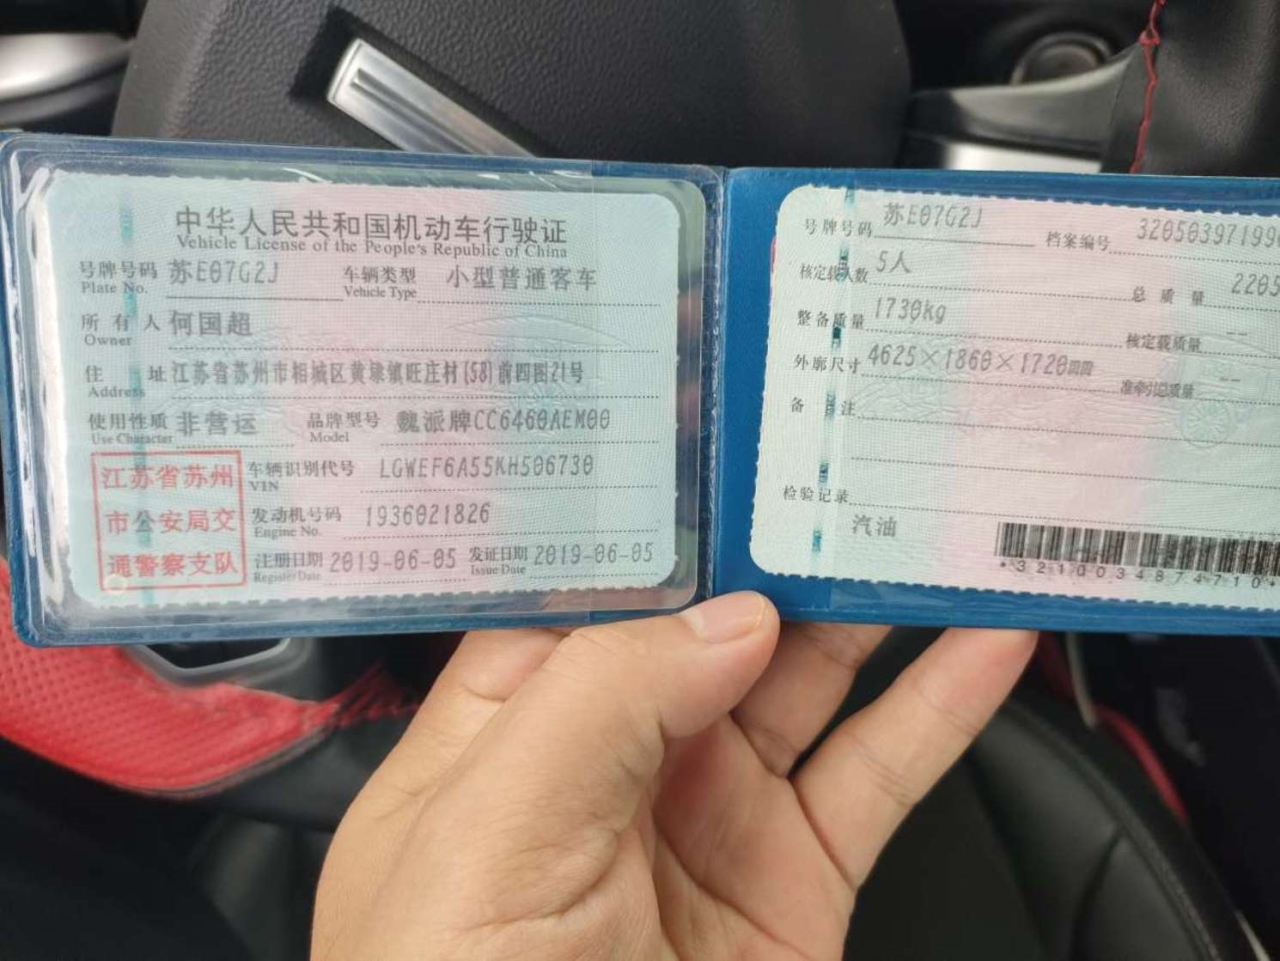 中华人民共和国机动车行驶证
Vehicle License of the People's Republic of China
号牌号码 苏E07G2J 车辆类型 小型普通客车
Plate No. Vehicle Type
所有人 何国超
Owner
住址 江苏省苏州市相城区黄埭镇旺庄村(58)前四图21号
Address
使用性质 非营运 品牌型号 魏派牌CC6460AEM00
Use Character Model
江苏省苏州
市公安局交
通警察支队
车辆识别代号 LGWEF6A55KH506730
VIN
发动机号码 1936021826
Engine No.
注册日期 2019-06-05 发证日期 2019-06-05
Register Date Issue Date
号牌号码 苏E07G2J 档案编号 32050397199
核定载人数 5人 总质量 2205
整备质量 1730kg 核定载质量 --
外廓尺寸 4625×1860×1720mm 准牵引总质量 --
备注
检验记录
汽油
*3210034874710*